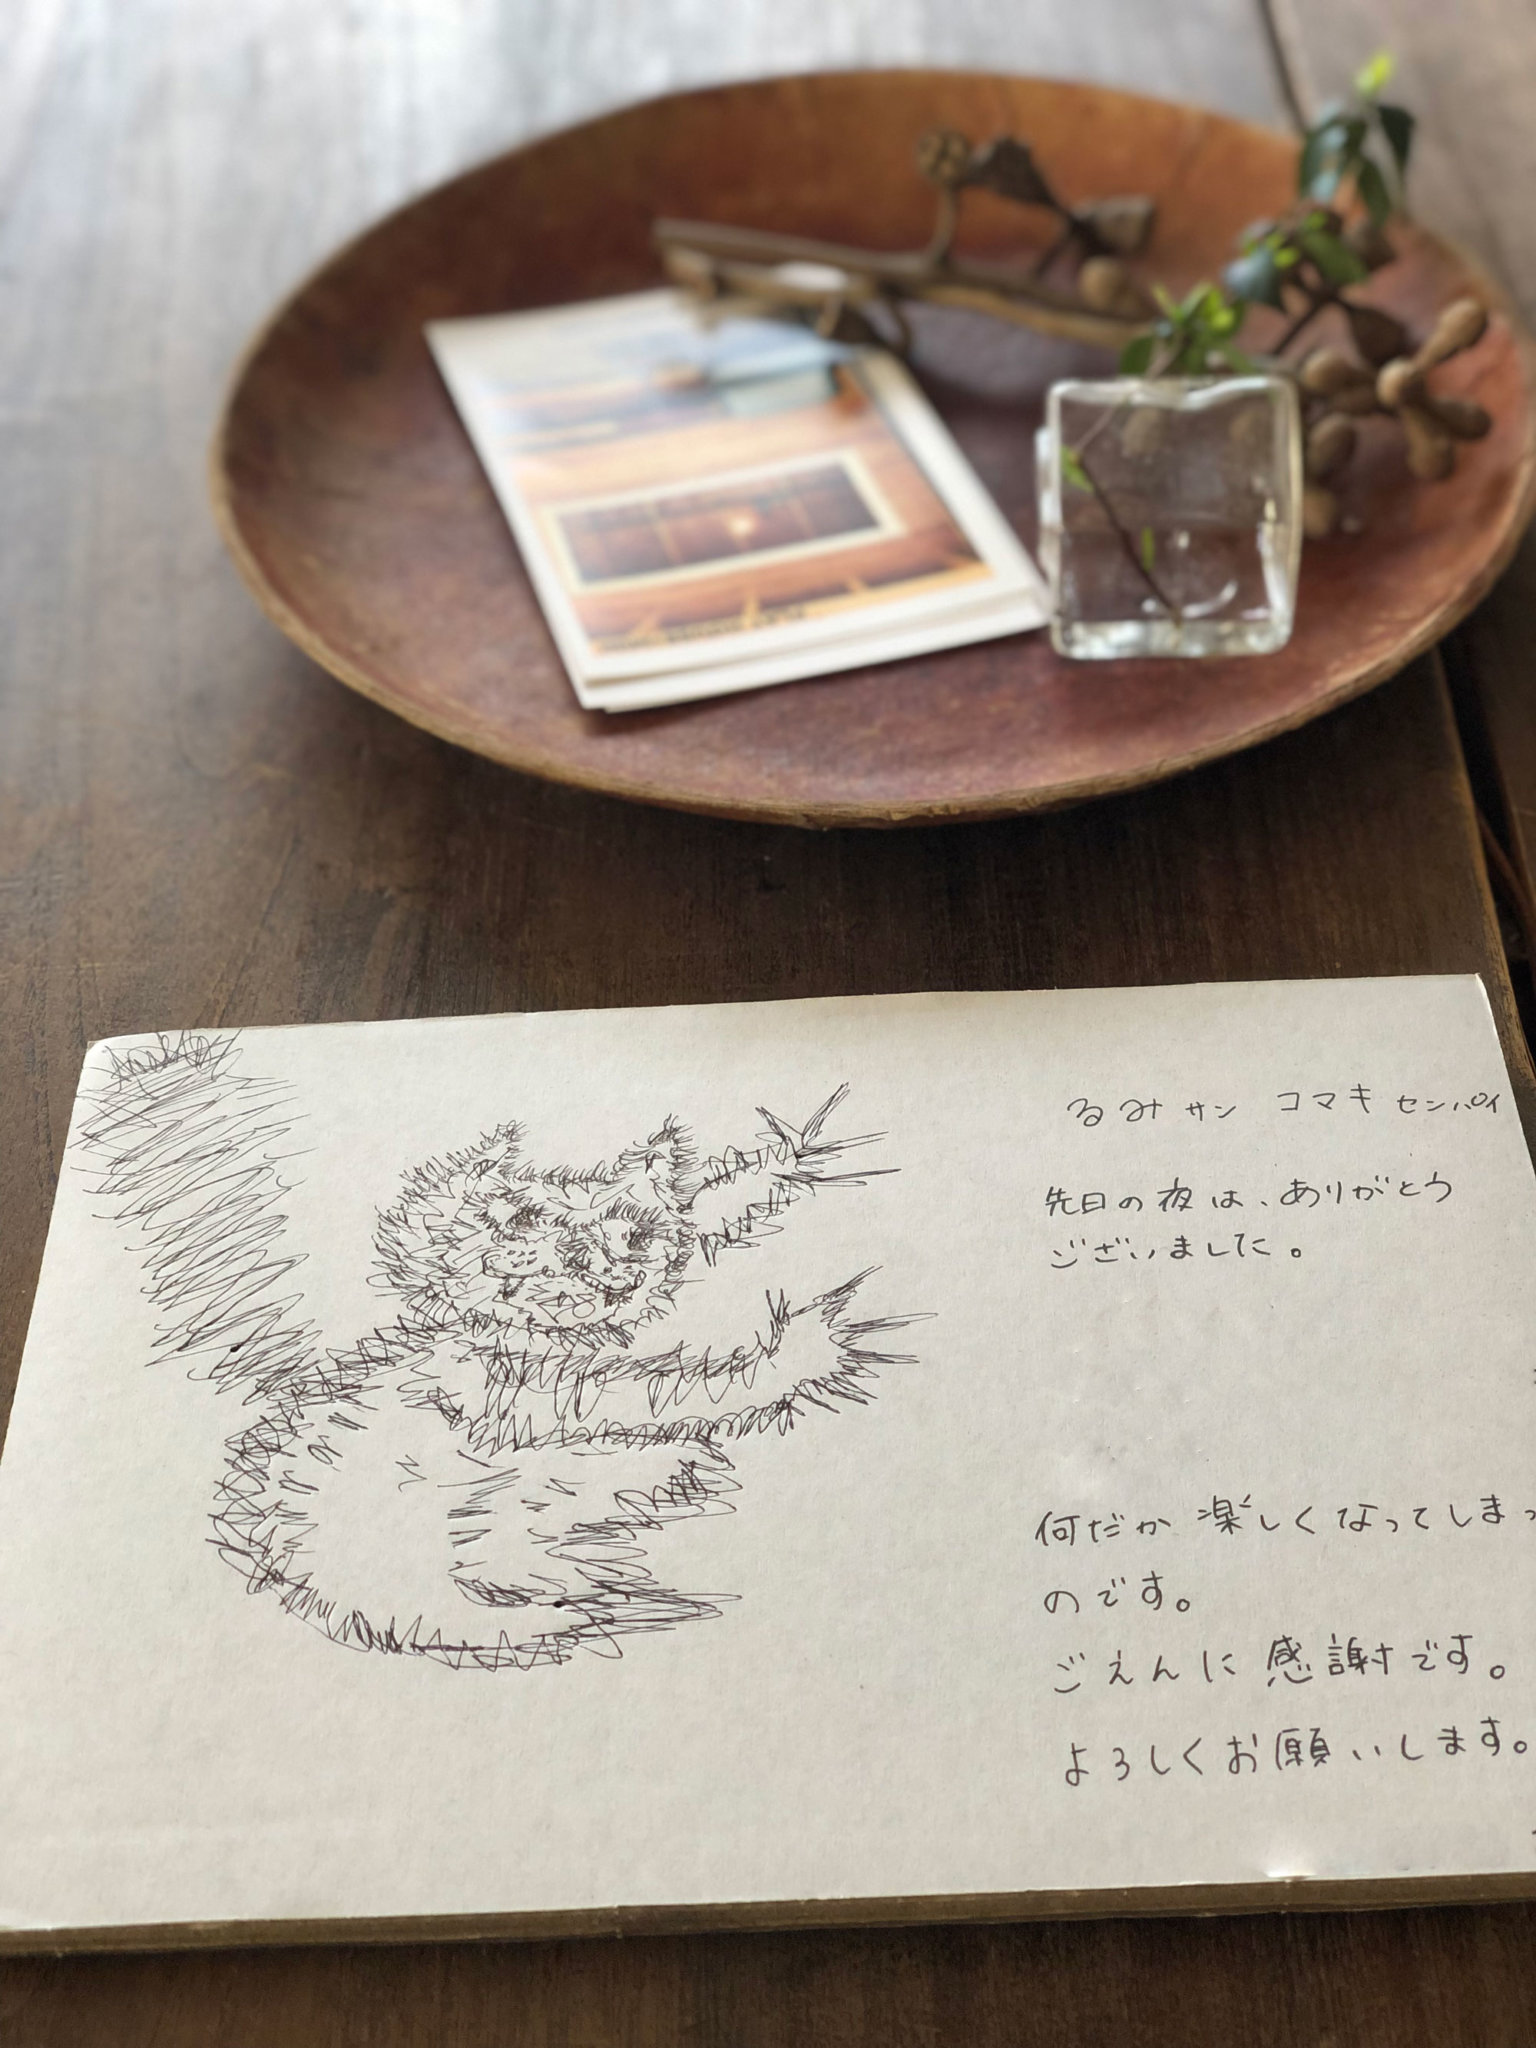 るみサン コマキセンパイ
先日の夜は、ありがとう
ございました。
何だか楽しくなってしまっ
のです。
ごえんに感謝です。
よろしくお願いします。